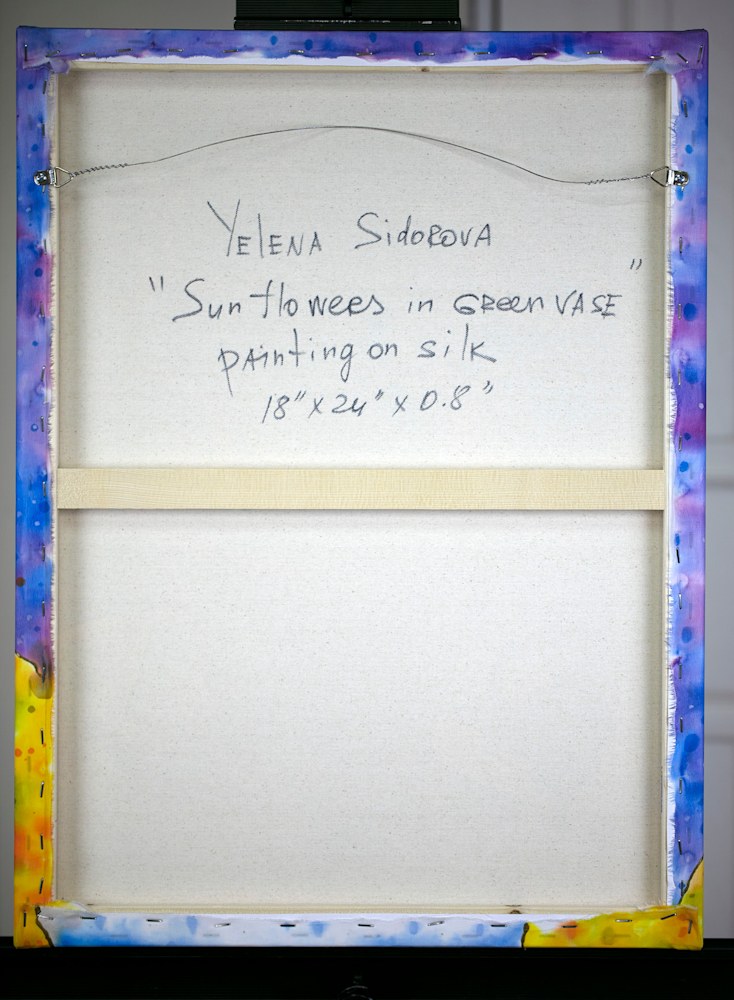 YElENA SidoROVA
"Sunflowers in GReen VASE"
pAinting on silk
18" x 24" x 0.8"